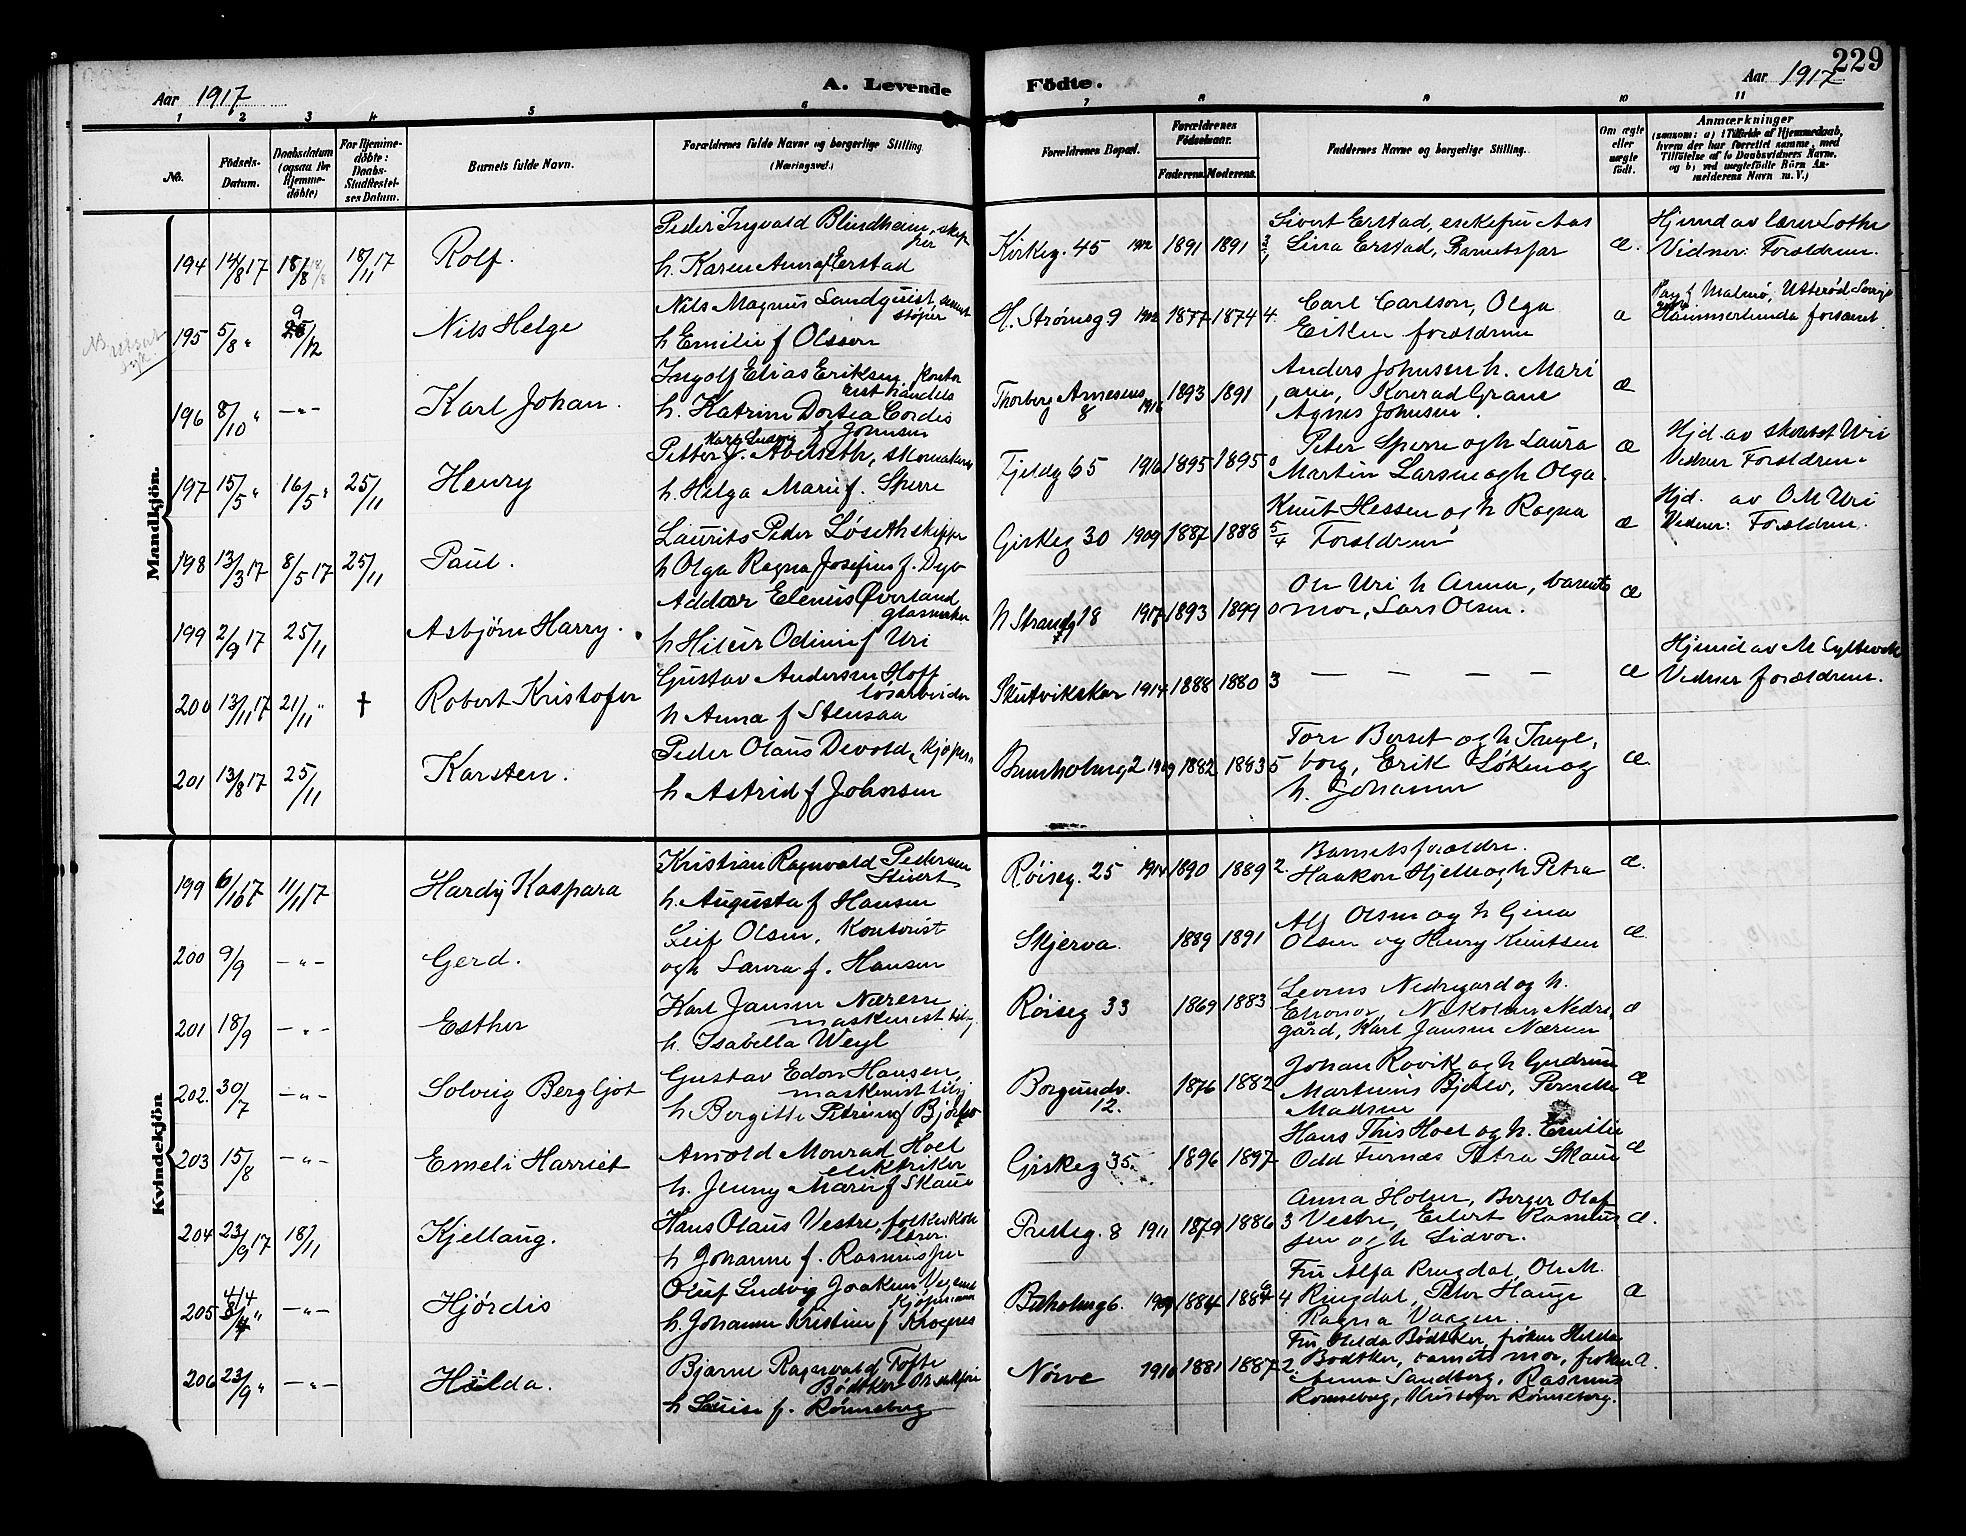 229
Aar 1917 A. Levende Födte. Aar 1917
1 2 3 4 5 6 7 8 9 10 11
No.
Födsels-Datum.
Daabsdatum (ogsaa for Hjemmedöbte)
For Hjemmedöbte: Daabs-Stadfæstelses Datum.
Barnets fulde Navn.
Forældrenes fulde Navne og borgerlige Stilling (Næringsvei.)
Forældrenes Bopæl.
Forældrenes Födselsaar.
Faderens. Moderens.
Faddernes Navne og borgerlige Stilling.
Om ægte eller uægte födt.
Anmærkninger
(saasom: a) i Tilfælde af Hjemmedaab, hvem der har forrettet samme, med Tilföielse af to Daabsvidners Navne, og b) ved uægtefödte Börn Anmelderens Navn m. V.)
Mandkjön.
194 14/8 17 18/8 18/11 17 Rolf.
Peder Ingvald Blindheim, skipper
h. Karen Anna f Erstad
Kirkeg. 45 1912 1891 1891
Sivert Erstad,
Lina Erstad, Barnets far
æ.
Hjemd av lærer Lothe
Vidner: Forældrene.
195 5/8 " 9/12 Nils Helge
Nils Magnus Sandquist, cement støper
h Emilie f Olsson
H. Strømsg 9 1902 1877 1874 4.
Carl Carlson, Olga
Eiken forældrene
æ
Hammerlunda forsaml.
196 8/10 " —"— Karl Johan.
Ingolf Elias Eriksen, kontorist handels
h. Katrine Dortea Cordis f Johnsen
Thorberg Arnesens 8 1916 1893 1891 1
Anders Johnsen h. Mari
ane, Konrad Grane
Agnes Johnsen.
æ
197 15/5 " 16/5 " 25/11 Henry
Petter J. Abelseth, skomaker
h. Helga Marie f. Sperre
Fjeldg 65 1916 1895 1895 0
Peter Sperre og h Laura
Martin Larsen og h Olga.
æ
Hjd av skoebst Uri
Vidner Forældrene
198 13/3 17 8/5 17 25/11 Paul.
Laurits Peder Løseth skipper
h Olga Ragna Josefine f. Dyb
Girkeg 30 1909 1887 1888 5/4
Knut Hessen og h Ragna
Forældrene
æ
Hjd. av O M Uri
Vidner: Forældrene.
199 2/9 17 25/11 Asbjørn Harry.
Addør Elenius Øverland glasmester
h Hildur Odine f Uri
N Strandg 18 1917 1893 1899 0
Ole Uri h Anna, barnets
mor, Lars Olsen.
æ
200 13/11 17 21/11 " † Robert Kristofer
Gustav Andersen Hoff løsarbeider
h Anna f Stensaa
Skutvikskar 1914 1888 1880 3
— — — — —
æ
Hjemd av M Gyltevik
Vidner forældrene.
201 13/8 17 25/11 Karsten.
Peder Olaus Devold, Kjøpm
h Astrid f Johnsen
Bunholmg 2 1909 1882 1883 5
Tore Berset og h Inge,
borg, Erik Løken og
h. Johanne
æ
Kvindekjön
199 6/10 17 11/11 17 Hardy Kaspara
Kristian Ragnvald Pedersen
h. Augusta f Hansen
Røiseg. 25 1914 1890 1889 2.
Barnets forældre.
Haakon Hjelle og h Petra
æ.
200 9/9 —"— Gerd.
Leif Olsen, Kontorist
og h Laura f. Hansen
Skjerva. 1889 1891
Alf Olsen og h Gina
Olsen og Henry Knutsen
æ.
201 18/9 —"— Esther
Karl Jansen Nærem
maskinist
h. Isabella Weyl
Røiseg 33 1869 1883
Levins Nedregard og h.
Elionor, Nikoline Nedre
gård, Karl Jansen Nærem
æ
202. 30/7 —"— Solveig Bergljot
Gustav Edon Hansen,
maskinist
h Bergitte Petrine f Bjørlo
Borgundv. 12. 1876 1882
Johan Rovik og h Gudrun
Martinius Bjørlo, Pernette
Madsen
æ
203 15/8 —"— Emeli Harriet
Arnold Monrad Hoel
elektriker
h. Jenny Marie f Skaue
Girskeg 35. 1896 1897
Hans This Hoel og h. Emilie
Odd Furnæs Petra Skaue
æ
204 23/9 17 18/11 Kjellaug.
Hans Olaus Vestre, folkeskole lærer.
h Johanne f. Rasmussen
Presteg. 8 1911 1879 1886 3
Anna Holm, Berger Olaf
Vestre, Eilert Rasmus
sen og h Lidvor.
æ.
205 4/4 " —"— Hjördis
Oluf Ludvig Joakim Kjøpmann
h. Johanne Kristine f Krognes
Buholmg 6. 1909 1884 1886 4
Fru Alfa Ringdal, Ole M.
Ringdal, Peter Hauge
Ragna Vaagen.
æ
206 23/9 " —"— Hilda.
Bjarne Ragnvald Tofte
Bødtker
h Louise f. Rönneberg
Nörve 1910 1881 1887 2
Fru Hilda Bødtker, frøken Hilda
Bødtker, barnets mor, frøken
Anna Sandberg, Rasmus
Rønneberg, Kristofer Rønneberg.
æ.